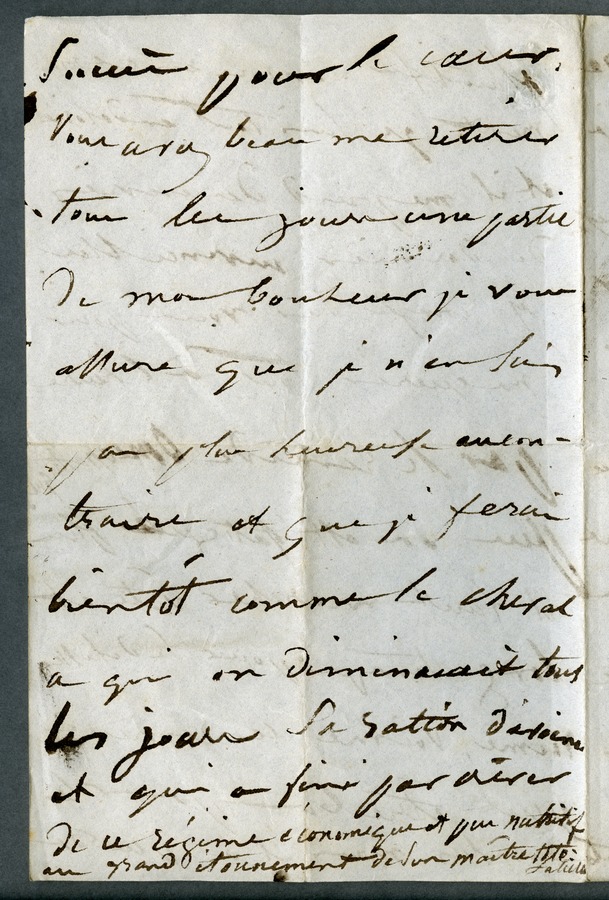 pour le cœur.
Vous avez beau me retirer
tous les jours une partie
de mon bonheur je vous
assure que je n'en suis
pas plus heureuse aucon-
traire et que je ferai
bientôt comme le cheval
a qui on diminuait tous
les jours sa ration d'avoine
et qui a fini par crever
de ce régime économique et peu nutritif
au grand étonnement de son maître